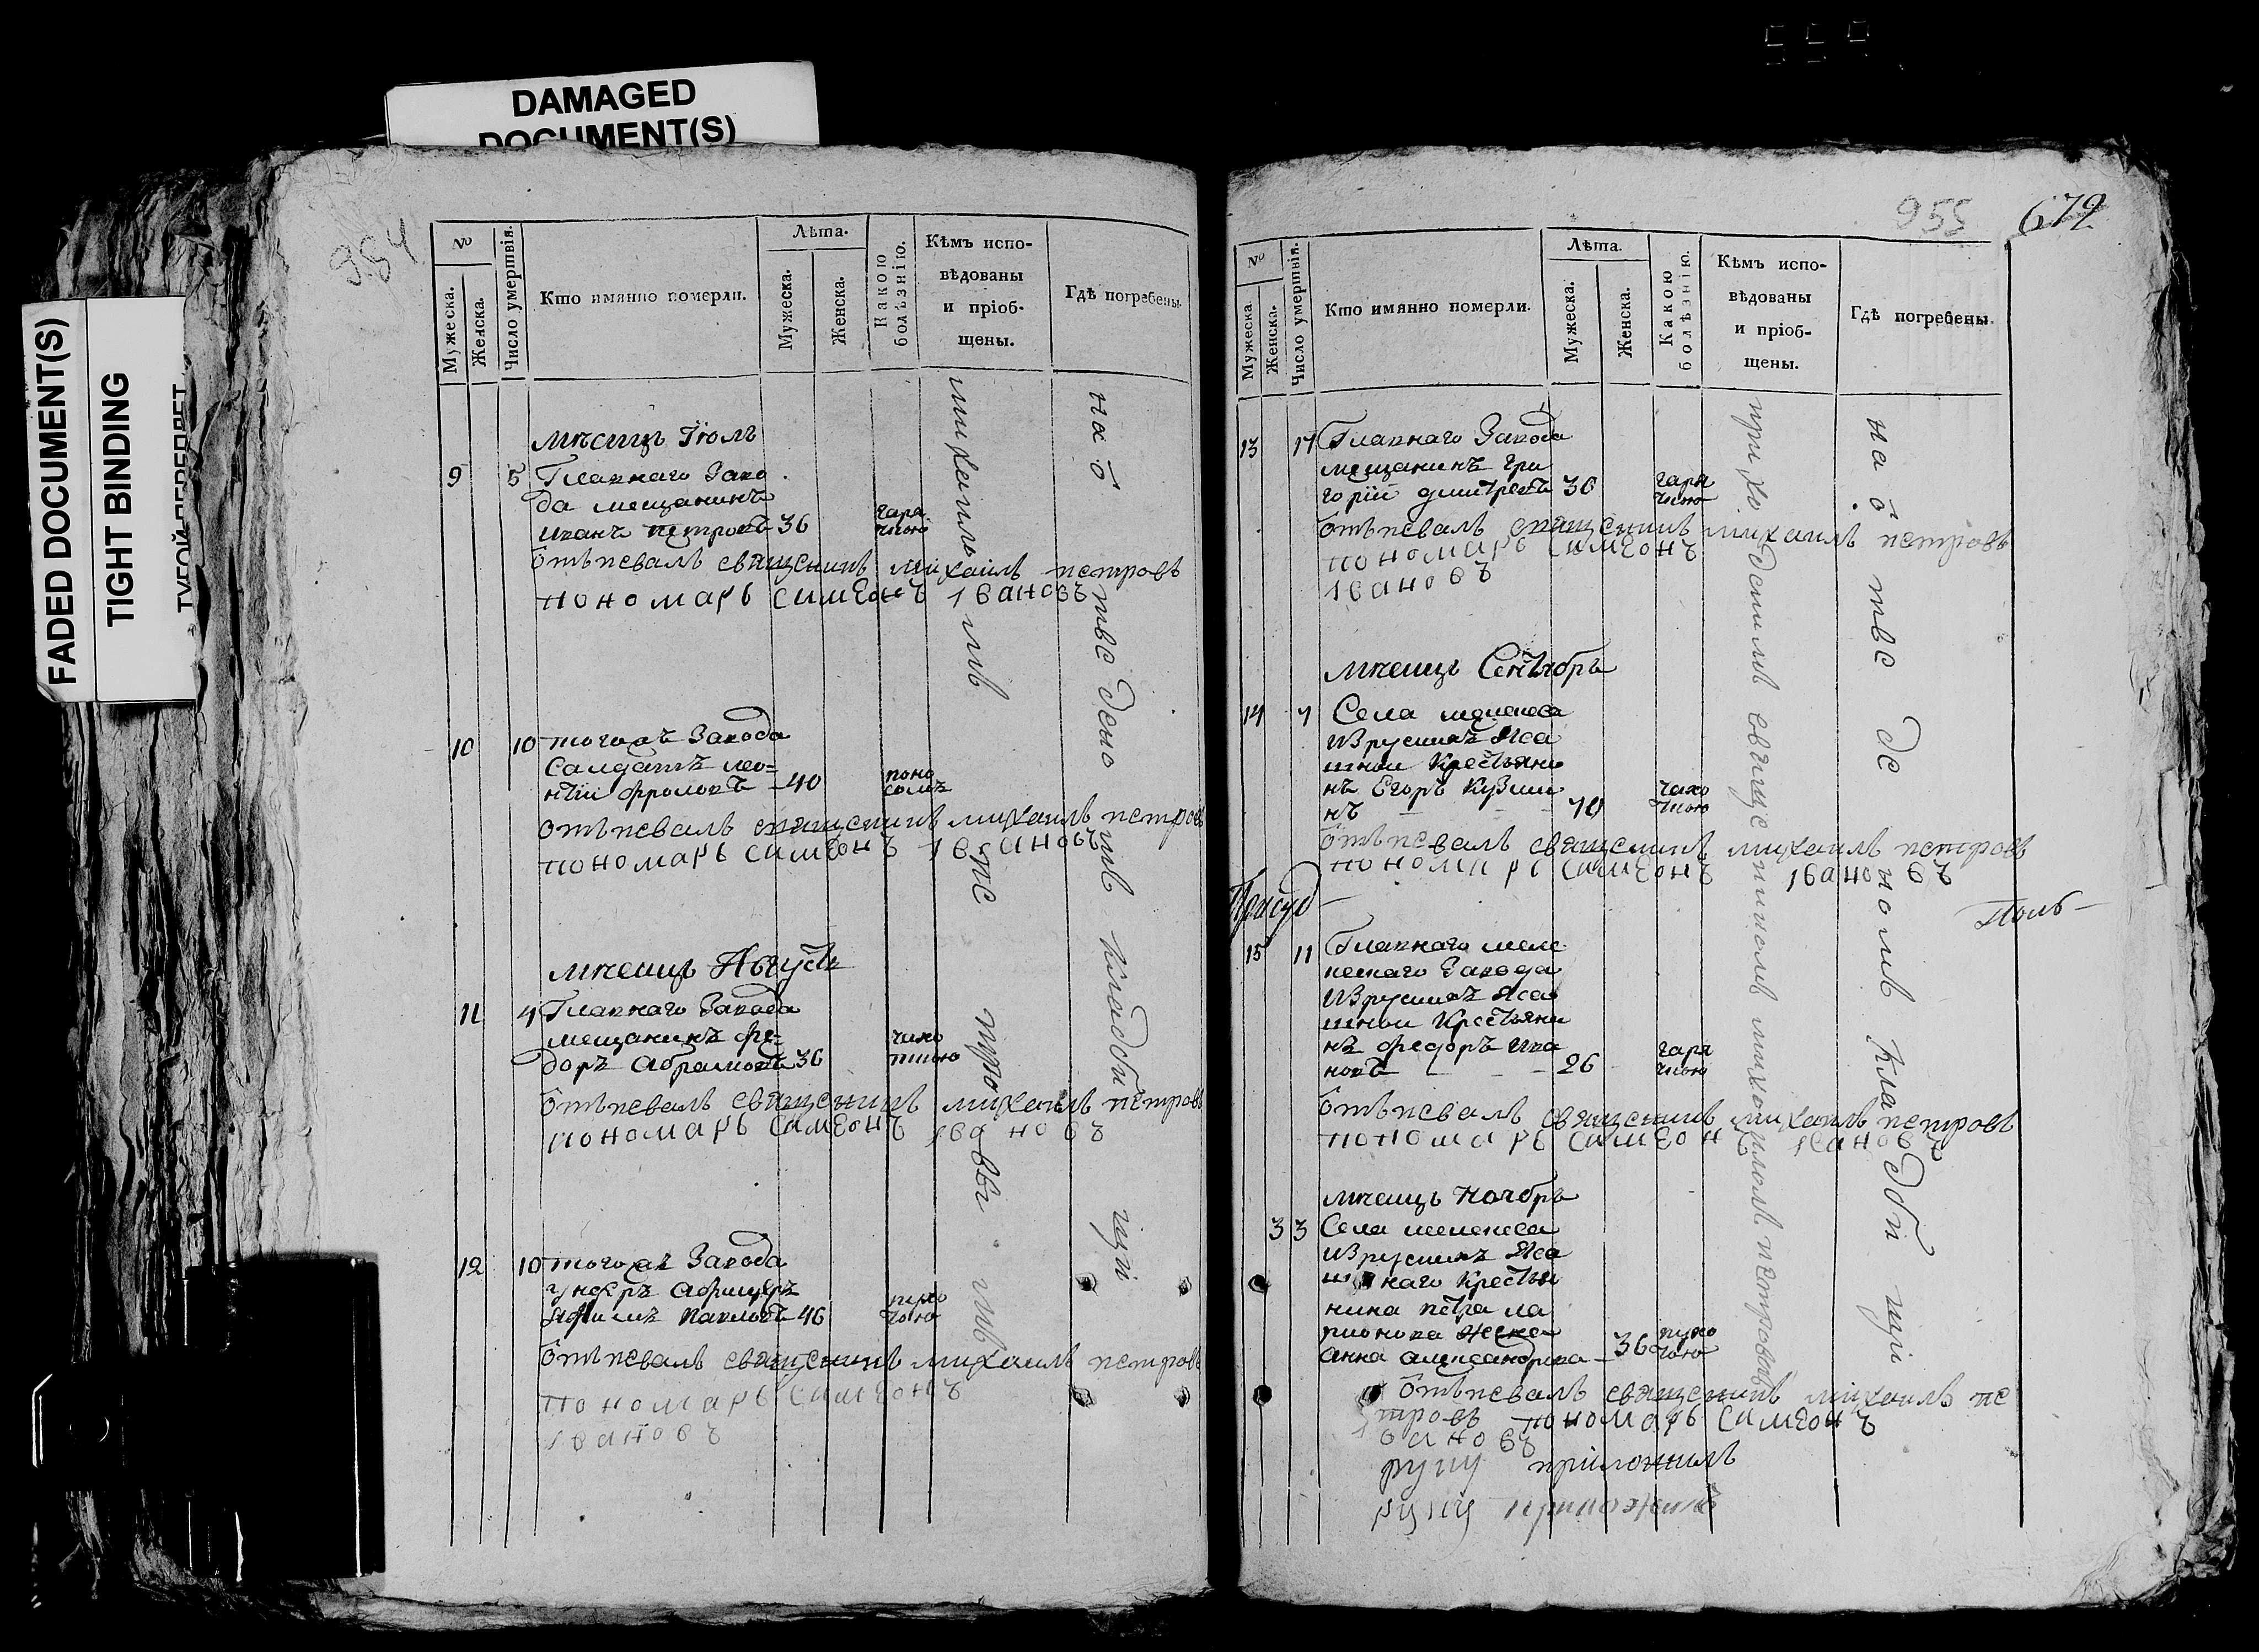 DAMAGED
DOCUMENT(S)
FADED DOCUMENT(S)
TIGHT BINDING
ТУГОЙ ПЕРЕПЛЕТ
954
№
Мужеска.
Женска.
Число умертвія.
Кто имянно померли.
Лѣта.
Мужеска.
Женска.
Какою
болѣзнію.
Кѣмъ испо-
вѣдованы
и пріоб-
щены.
Гдѣ погребены.
мѣсяцъ Іюль
9 5 Главнаго Заво
да мещанинъ
иванъ петровъ 36 гаря
чкою
отъпевалъ священникъ михаилъ петровъ
пономарь симеонъ івановъ
10 10 тогожъ Завода
Салдатъ лео=
нтїи фроловъ 40 поно
сомъ
отъпевалъ священникъ михаилъ петровъ
пономарь симеонъ івановъ
мѣсяцъ Августъ
11 4 Главнаго Завода
мещанинъ фе=
доръ абрамовъ 36 чахо
ткою
отъпевалъ священникъ михаилъ петровъ
пономарь симеонъ івановъ
12 10 тогожъ Завода
унтеръ афицеръ
павловъ 46
отъпевалъ священникъ михаилъ петровъ
пономарь симеонъ
івановъ
михаиломъ петровымъ
на отведеномъ кладбищи
955 672
№
Мужеска
Женска.
Число умертвія.
Кто имянно померли.
Лѣта.
Мужеска.
Женска.
Какою
болѣзнію.
Кѣмъ испо-
вѣдованы
и пріоб-
щены.
Гдѣ погребены.
13 17 Главнаго Завода
мещанинъ гри
горїй дмитревъ 36 гаря
чкою
отъпевалъ священникъ михаилъ петровъ
пономарь симеонъ
івановъ
мѣсяцъ Сентябрь
14 7 Села мелекеса
Изрускихъ Яса
шнои Крестьяни
нъ Егоръ Кузми
нъ 70
отъпевалъ священникъ михаилъ петровъ
пономарь симеонъ івановъ
15 11 Главнаго меле
кескаго Завода
Изрускихъ Яса
шнои Крестьяни
нъ федоръ ива
новъ 26 гаря
чкою
отъпевалъ священникъ михаилъ петровъ
пономарь симеонъ івановъ
мѣсяцъ ноябрь
3 3 Села мелекеса
Изрускихъ Яса
шнаго Крестья
нина петра ла
рионова жена
анна александрова 36
отъпевалъ священникъ михаилъ пе
тровъ пономарь симеонъ
івановъ
руку приложилъ
руку приложилъ
приходскимъ священникомъ михаиломъ петровымъ
на отведеномъ кладбищи